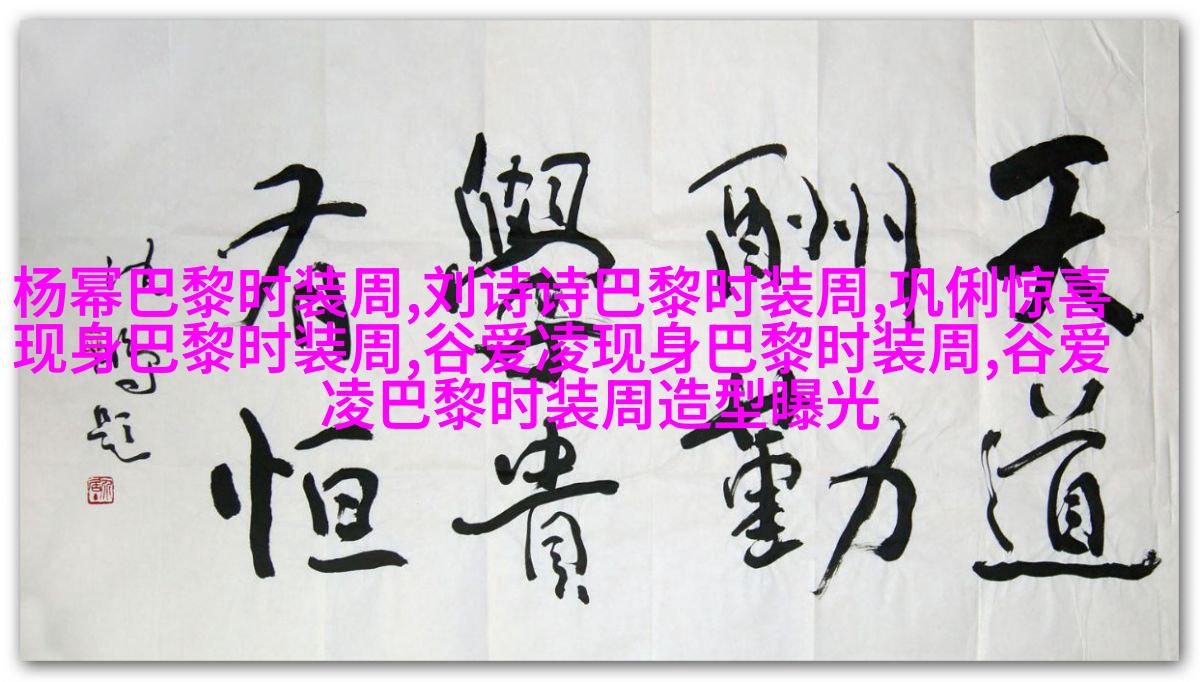 杨幂巴黎时装周,刘诗诗巴黎时装周,巩俐惊喜
现身巴黎时装周,谷爱凌现身巴黎时装周,谷爱
凌巴黎时装周造型曝光
天道
酬勤
學貴
有恒
題